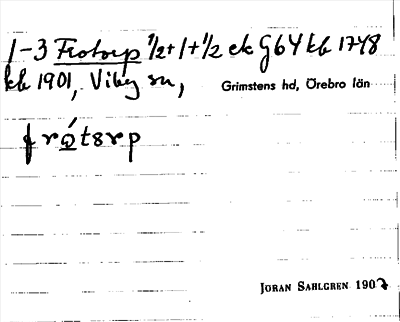 1-3 Frotorp 1/2+1+1/2 ek G64 kb 1748
kb 1901, Viby sn, Grimstens hd, Örebro län
frótsrp
JÖRAN SAHLGREN 1907